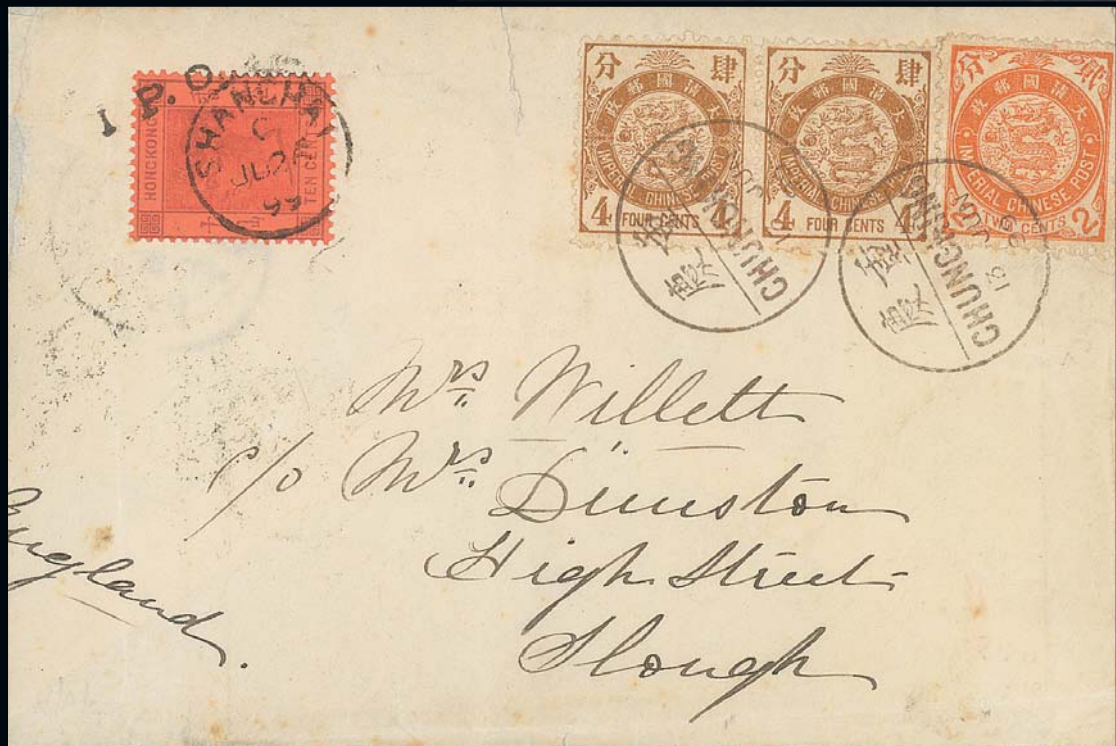 I. P. O.
SHANGHAI
C
JU 21
99
HONGKONG
TEN CENTS
分 肆
大清國郵政
IMPERIAL CHINESE POST
4 FOUR CENTS 4
分 肆
大清國郵政
IMPERIAL CHINESE POST
4 FOUR CENTS 4
分 貳
大清國郵政
IMPERIAL CHINESE POST
2 TWO CENTS 2
CHUNGKING
重慶
CHUNGKING
重慶
Mrs. Willett
c/o Mrs. Dunston
High Street
Slough
England.